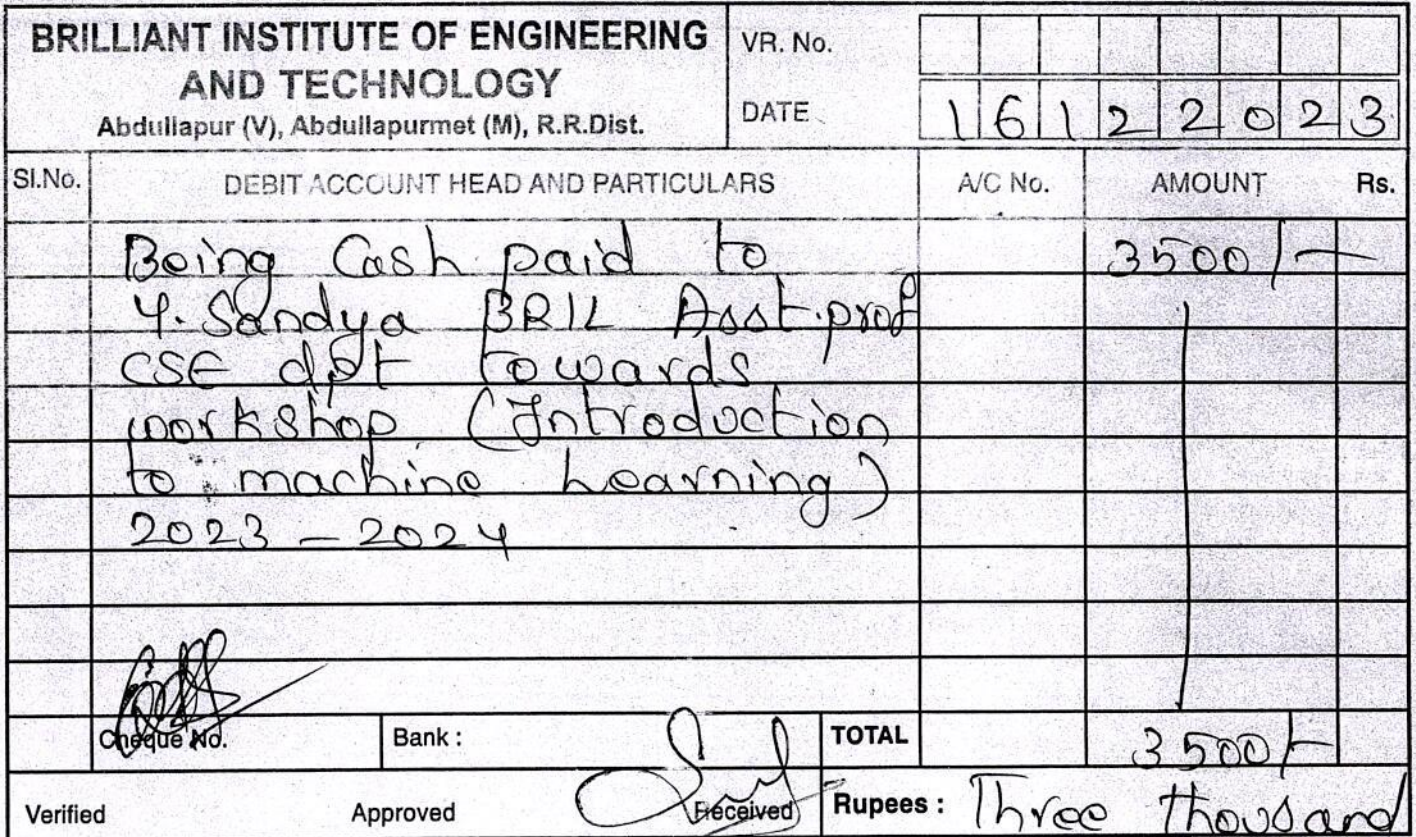 BRILLIANT INSTITUTE OF ENGINEERING
AND TECHNOLOGY
Abdullapur (V), Abdullapurmet (M), R.R.Dist.
VR. No.
DATE 16122023
Sl.No. DEBIT ACCOUNT HEAD AND PARTICULARS A/C No. AMOUNT Rs.
Being Cash paid to 3500/-
Y. Sandya BRIL Asst.prof
CSE dpt towards
workshop (Introduction
to machine Learning)
2023 - 2024
Cheque No. Bank : TOTAL 3500/-
Verified Approved Received Rupees : Three thousand